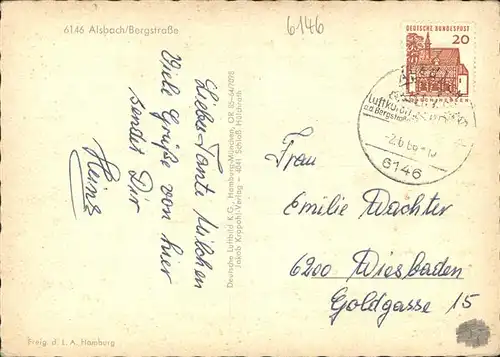 6146 Alsbach/Bergstraße
6146
DEUTSCHE BUNDESPOST
20
Luftkurort
a.d. Bergstraße
-2.6.66-
6146
Liebe Tante Milchen
Viele Grüße von hier
sendet Dir
Heinz
Deutsche Luftbild K.G., Hamburg-München, OR 85-64/7098
Jakob Krapohl-Verlag - 4041 Schloß Hülchrath
Frau
Emilie Wachter
6200 Wiesbaden
Goldgasse 15
Freig. d. L. A. Hamburg